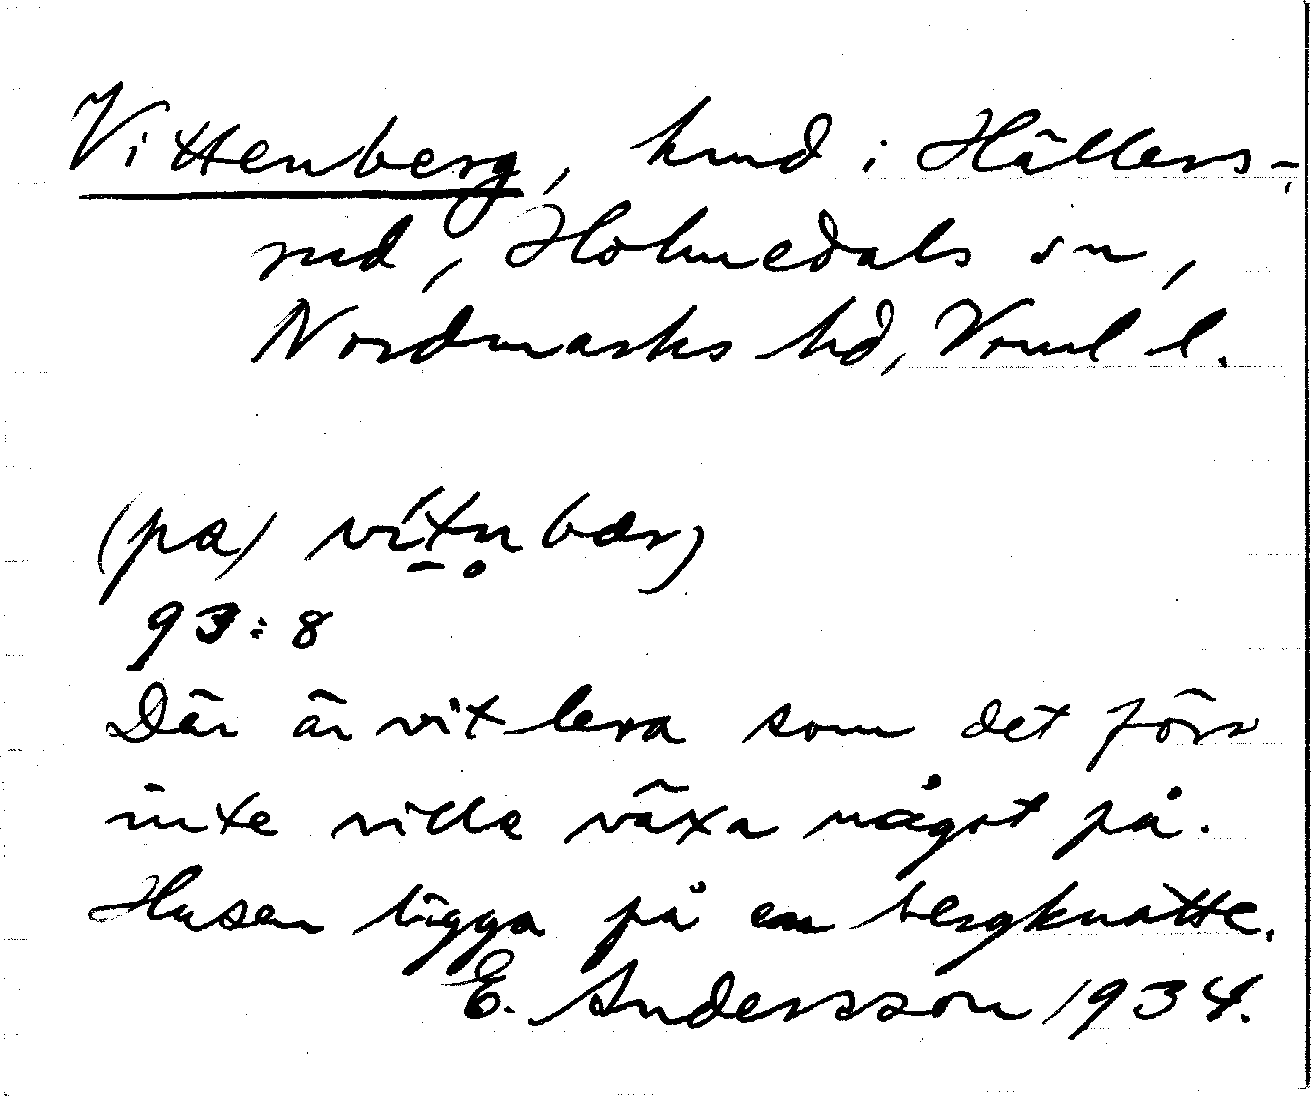 Vittenberg, hmd i Hällers-
rud, Holmedals sn,
Nordmarks hd, Vrml l.
(pa) vítn̥bær)
93:8
Där är vit lera som det förr
inte ville växa något på.
Husen ligga på en bergknatte.
E. Andersson 1934.